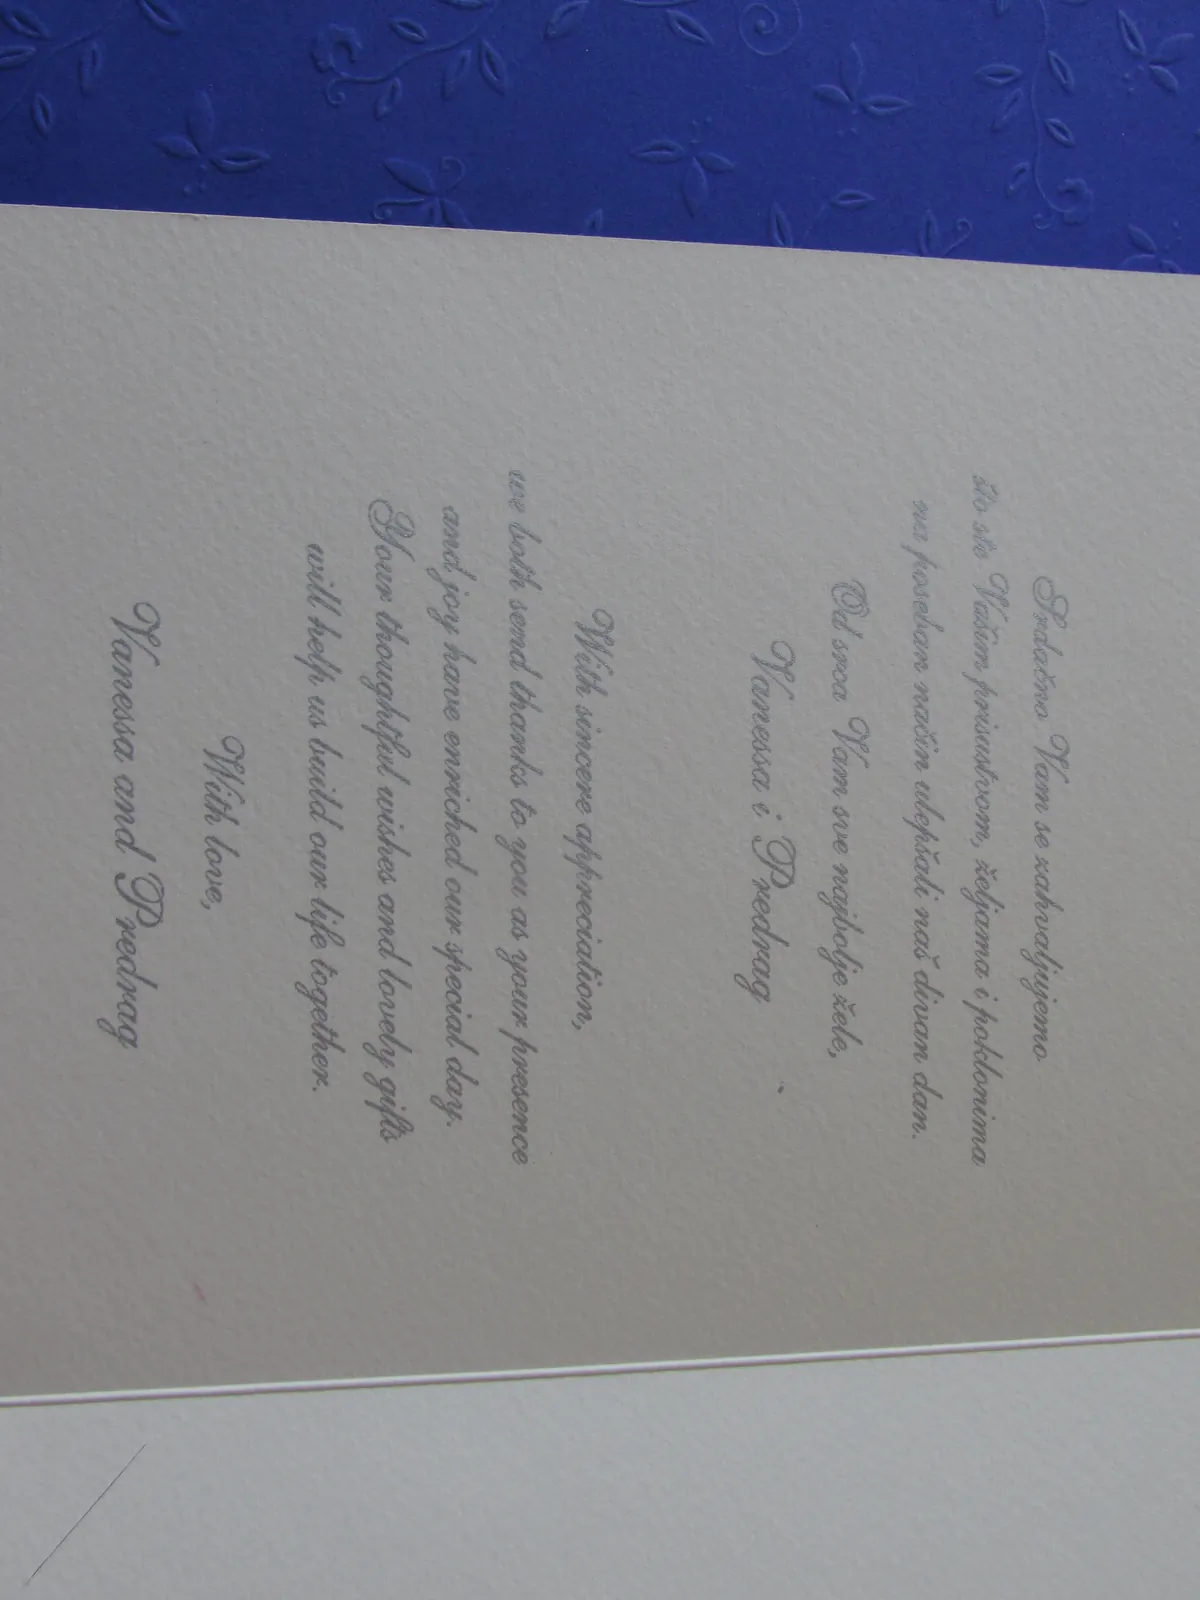 Srdačno Vam se zahvaljujemo
što ste Vašim prisustvom, željama i poklonima
na poseban način ulepšali naš divan dan.
Od srca Vam sve najbolje žele,
Vanessa i Predrag
With sincere appreciation,
we both send thanks to you as your presence
and joy have enriched our special day.
Your thoughtful wishes and lovely gifts
will help us build our life together.
With love,
Vanessa and Predrag